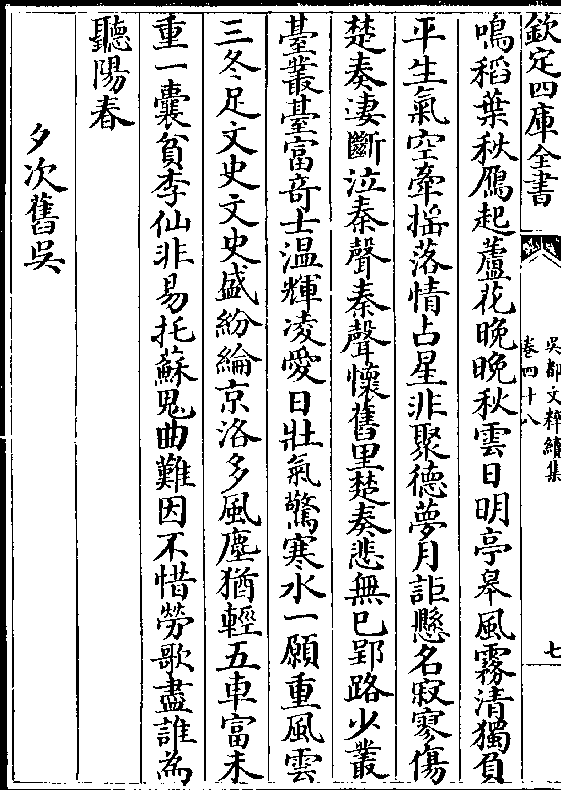 欽定四庫全書
吳都文粹續集
卷四十八
七
鳴稻葉秋鴈起蘆花晚晚秋雲日明亭皋風霧清獨負
平生氣空牽揺落情占星非聚德夢月詎懸名寂寥傷
楚奏凄斷泣秦聲秦聲懷舊里楚奏悲無已郢路少叢
臺叢臺富竒士温輝凌愛日壯氣驚寒水一願重風雲
三冬足文史文史盛紛綸京洛多風塵猶輕五車富未
重一囊貧李仙非易托蘇鬼曲難因不惜勞歌盡誰為
聽陽春
夕次舊吳